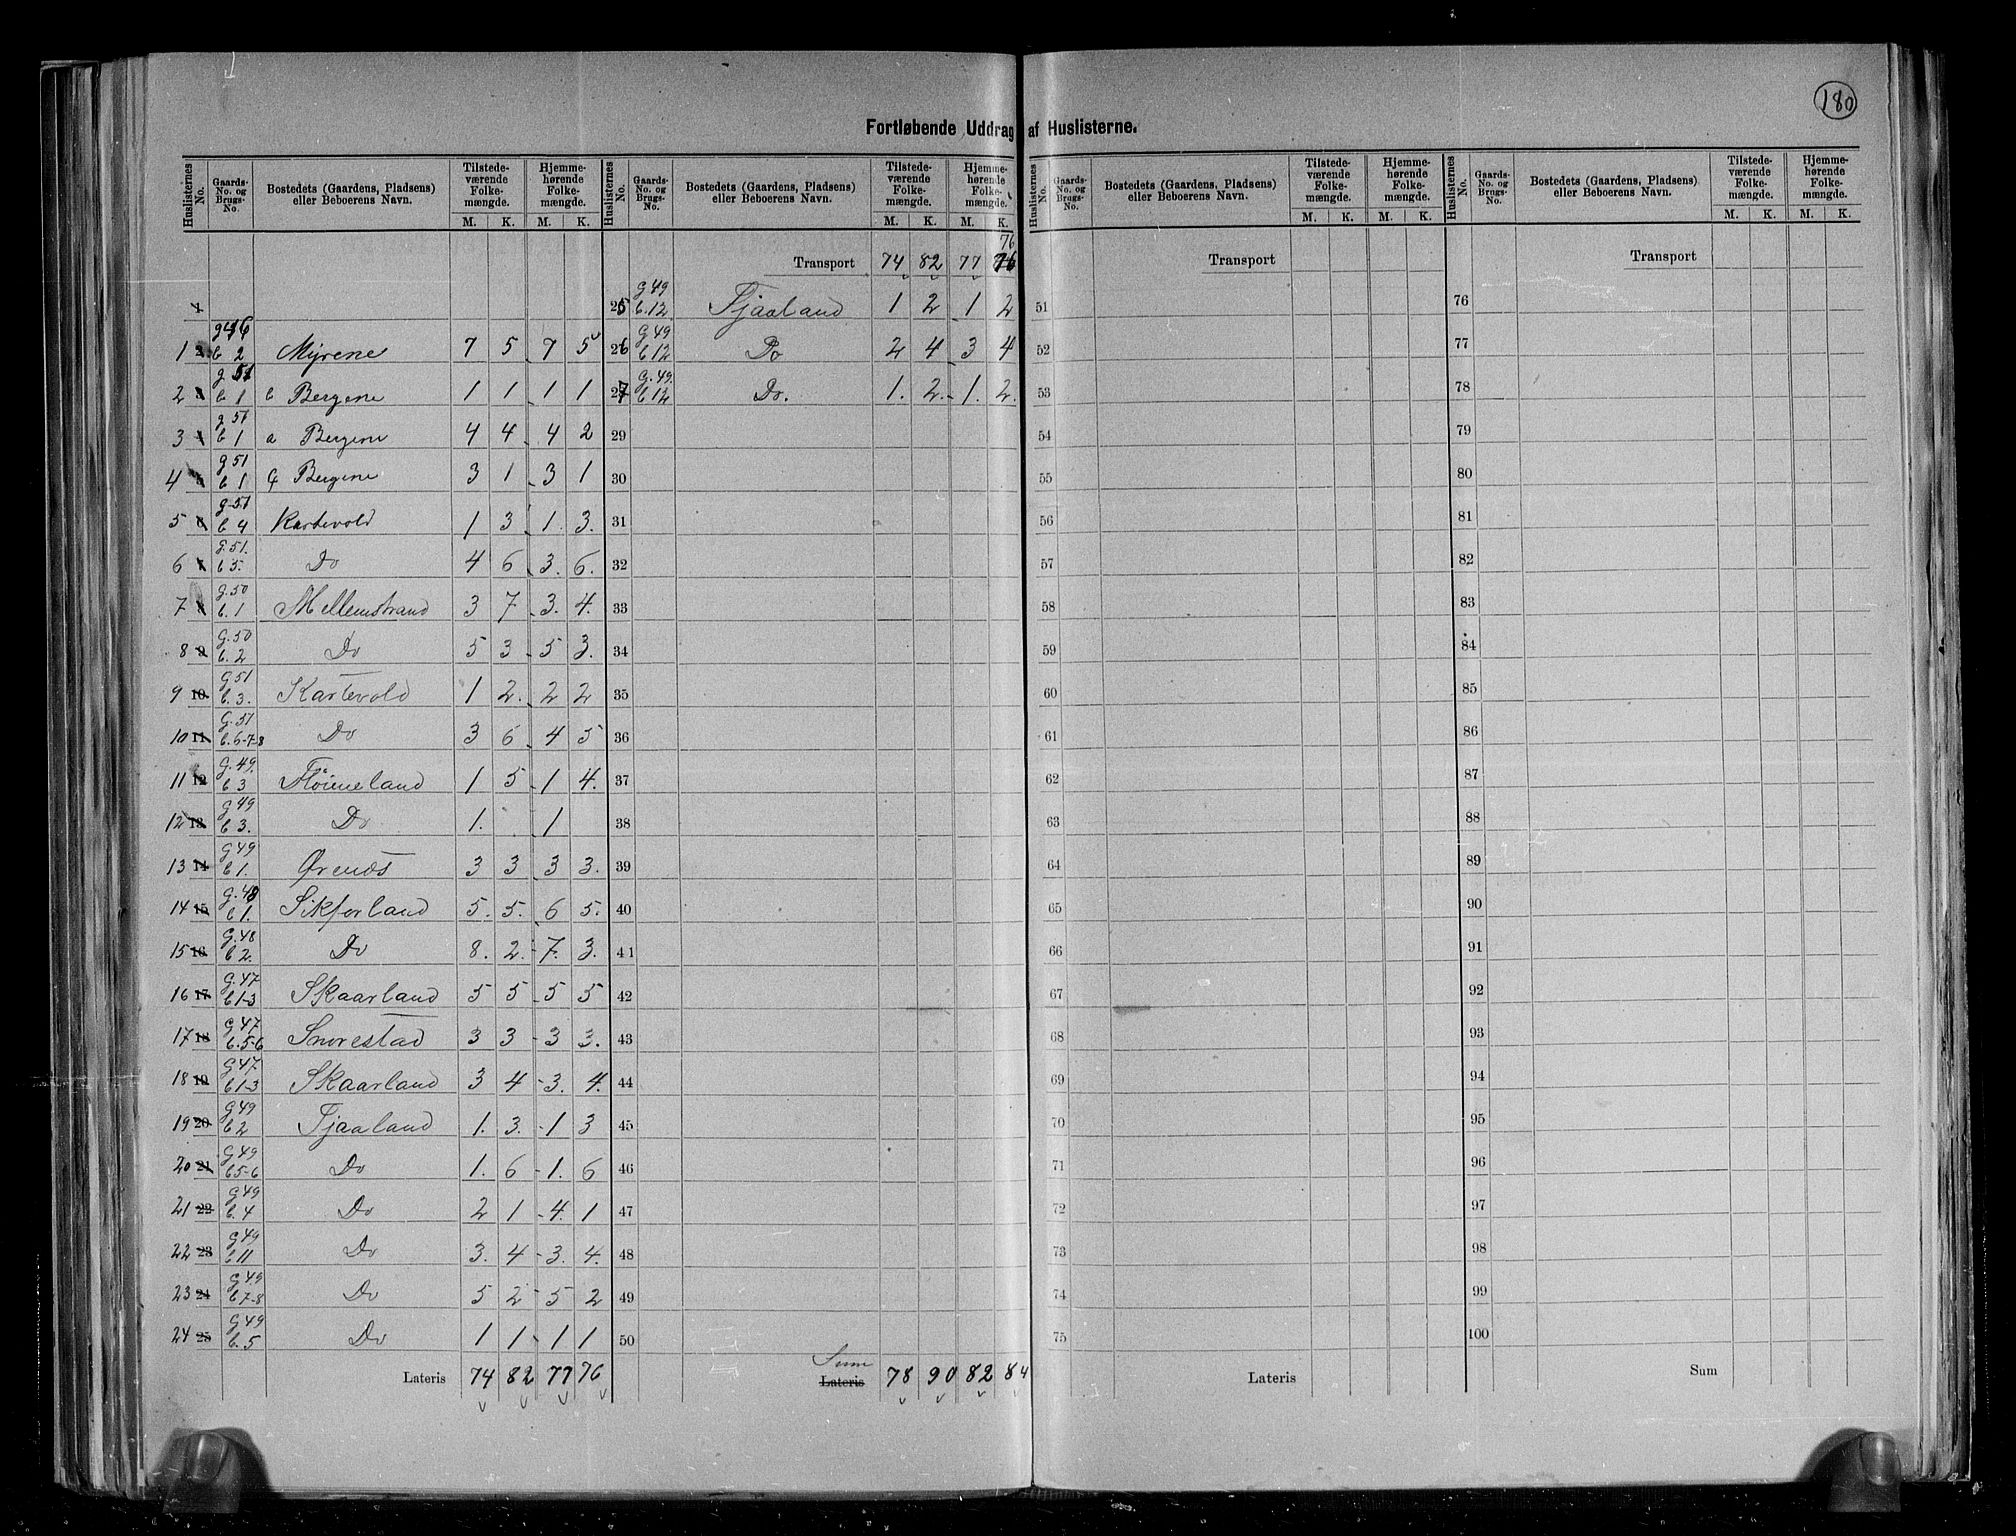 180
Fortløbende Uddrag af Huslisterne.
Huslisternes No. | Gaards-No. og Brugs-No. | Bostedets (Gaardens, Pladsens) eller Beboerens Navn. | Tilstedeværende Folkemængde. M. K. | Hjemmehørende Folkemængde. M. K.
1
1 2 | g 46 b 2 | Myrene | 7 | 5 | 7 | 5
2 3 | g 51 b 1 | b Bergene | 1 | 1 | 1 | 1
3 4 | g 51 b 1 | a Bergene | 4 | 4 | 4 | 2
4 5 | g 51 b 1 | c Bergene | 3 | 1 | 3 | 1
5 6 | g. 51 b 4 | Kartevold | 1 | 3 | 1. | 3.
6 7 | g. 51. b 5. | Do | 4 | 6 | 3. | 6.
7 8 | g. 50 b. 1 | Mellemstrand | 3 | 7 | 3. | 4.
8 9 | G. 50 b. 2 | Do | 5 | 3 | 5 | 3.
9 10 | G 51 b. 3. | Kartevold | 1 | 2. | 2 | 2
10 11 | G. 51 b. 6-7-8 | Do | 3 | 6 | 4 | 5
11 12 | G. 49. b 3 | Fløieneland | 1 | 5 | 1 | 4.
12 13 | g 49 b 3. | Do | 1. | | 1 |
13 14 | G 49 b 1. | Ørends | 3 | 3 | 3 | 3.
14 15 | G. 48 b 1. | Sikforland | 5. | 5. | 6 | 5.
15 16 | G. 48 b 2. | Do | 8. | 2. | 7. | 3.
16 17 | G. 47 b 1-3 | Skaarland | 5 | 5 | 5 | 5
17 18 | G 47 b. 5-6 | Snorestad | 3 | 3 | 3 | 3.
18 19 | G 47. b 1-3 | Skaarland | 3 | 4 | 3. | 4.
19 20 | G 49 b 2 | Tjaaland | 1. | 3. | 1 | 3
20 21 | G 49 b 5-6 | Do | 1. | 6 | 1. | 6
21 22 | G 49 b. 4 | Do | 2 | 1 | 4. | 1
22 23 | G 49 b 11 | Do | 3. | 4 | 3. | 4.
23 24 | G 49 b 7-8 | Do | 5 | 2 | 5 | 2
24 25 | G 49 b. 5 | Do | 1 | 1 | 1 | 1
Lateris | 74 | 82 | 77 | 76
Huslisternes No. | Gaards-No. og Brugs-No. | Bostedets (Gaardens, Pladsens) eller Beboerens Navn. | Tilstedeværende Folkemængde. M. K. | Hjemmehørende Folkemængde. M. K.
76
Transport | 74 | 82 | 77 | 76
25 | G 49 b. 12 | Tjaaland | 1 | 2 | 1 | 2
26 | G 49 b 12 | Do | 2 | 4 | 3 | 4
27 | G. 49. b 12 | Do. | 1. | 2. | 1. | 2.
29
30
31
32
33
34
35
36
37
38
39
40
41
42
43
44
45
46
47
48
49
50
Sum
Lateris | 78 | 90 | 82 | 84
Huslisternes No. | Gaards-No. og Brugs-No. | Bostedets (Gaardens, Pladsens) eller Beboerens Navn. | Tilstedeværende Folkemængde. M. K. | Hjemmehørende Folkemængde. M. K.
Transport
51
52
53
54
55
56
57
58
59
60
61
62
63
64
65
66
67
68
69
70
71
72
73
74
75
Lateris
Huslisternes No. | Gaards-No. og Brugs-No. | Bostedets (Gaardens, Pladsens) eller Beboerens Navn. | Tilstedeværende Folkemængde. M. K. | Hjemmehørende Folkemængde. M. K.
Transport
76
77
78
79
80
81
82
83
84
85
86
87
88
89
90
91
92
93
94
95
96
97
98
99
100
Sum